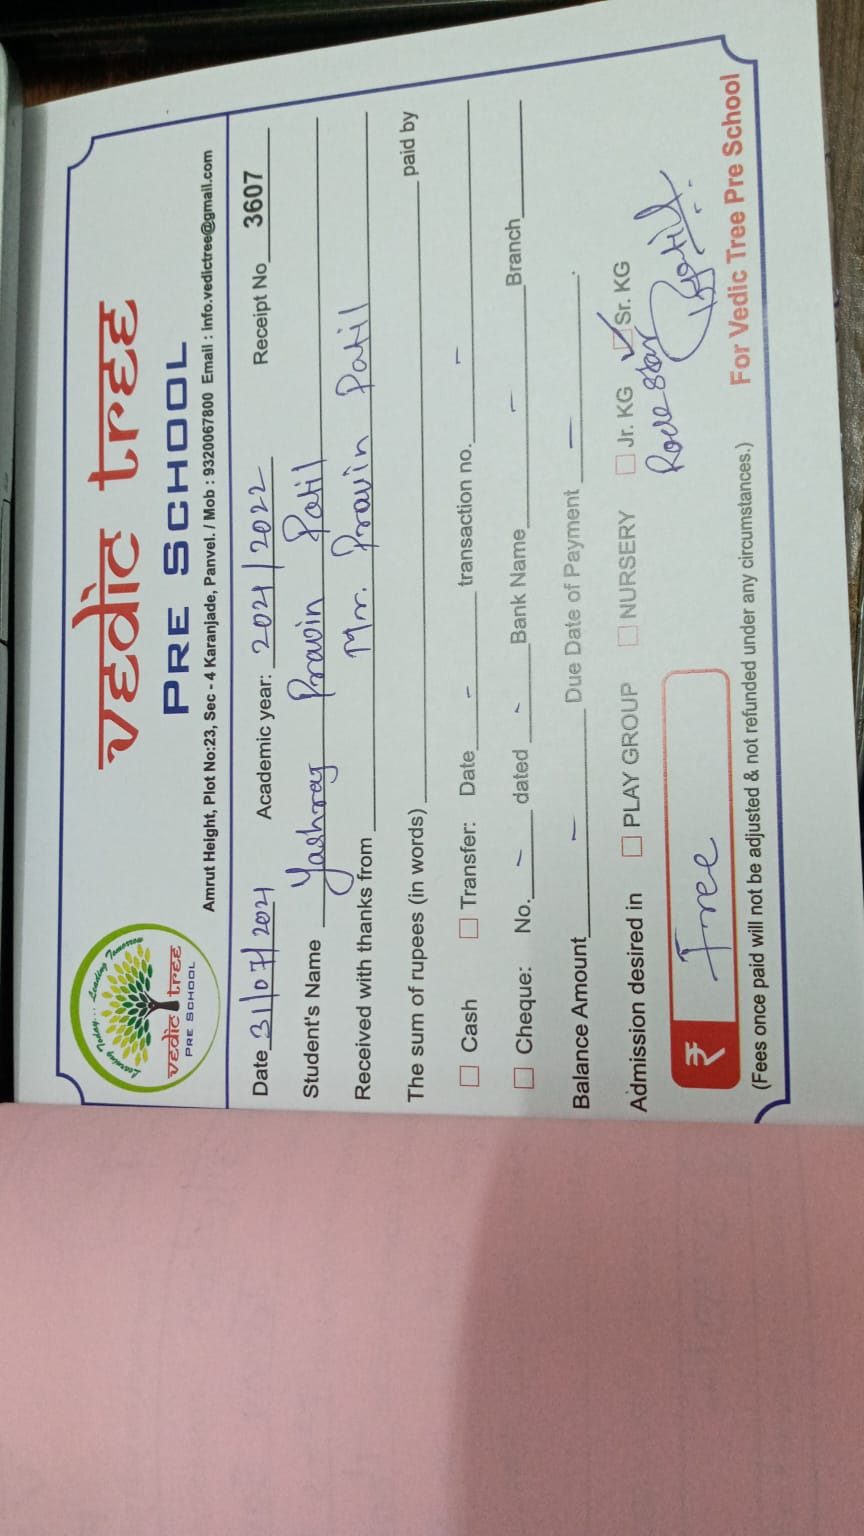 Learning Today... Leading Tomorrow
vedic tree
PRE SCHOOL
vedic tree
PRE SCHOOL
Amrut Height, Plot No:23, Sec - 4 Karanjade, Panvel. / Mob : 9320067800 Email : info.vedictree@gmail.com
Date 31/07/2021 Academic year: 2021/2022 Receipt No 3607
Student's Name Yashraj Pravin Patil
Received with thanks from Mr. Pravin Patil
The sum of rupees (in words) paid by
Cash Transfer: Date - transaction no. -
Cheque: No. - dated - Bank Name - Branch
Balance Amount - Due Date of Payment - .
Admission desired in PLAY GROUP NURSERY Jr. KG Sr. KG
₹ Free
(Fees once paid will not be adjusted & not refunded under any circumstances.)
For Vedic Tree Pre School